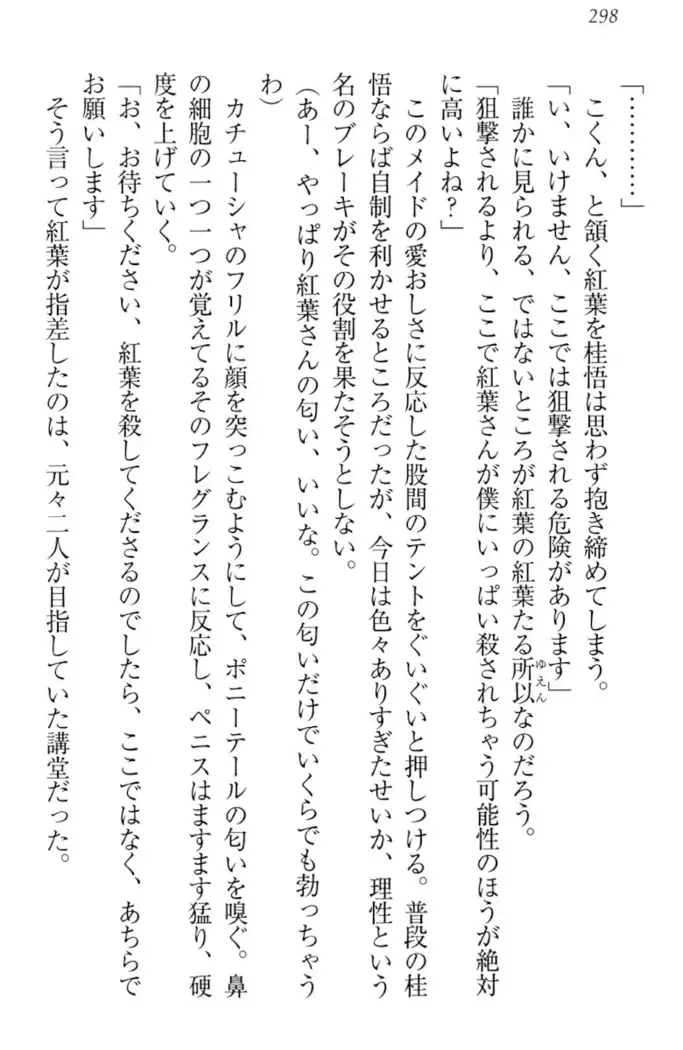 298
「…………」
こくん、と頷く紅葉を桂悟は思わず抱き締めてしまう。
「い、いけません、ここでは狙撃される危険があります」
誰かに見られる、ではないところが紅葉の紅葉たる所以なのだろう。
ゆえん
「狙撃されるより、ここで紅葉さんが僕にいっぱい殺されちゃう可能性のほうが絶対
に高いよね?」
このメイドの愛おしさに反応した股間のテントをぐいぐいと押しつける。普段の桂
悟ならば自制を利かせるところだったが、今日は色々ありすぎたせいか、理性という
名のブレーキがその役割を果たそうとしない。
(あー、やっぱり紅葉さんの匂い、いいな。この匂いだけでいくらでも勃っちゃう
わ)
カチューシャのフリルに顔を突っこむようにして、ポニーテールの匂いを嗅ぐ。鼻
の細胞の一つ一つが覚えてるそのフレグランスに反応し、ペニスはますます猛り、硬
度を上げていく。
「お、お待ちください、紅葉を殺してくださるのでしたら、ここではなく、あちらで
お願いします」
そう言って紅葉が指差したのは、元々二人が目指していた講堂だった。